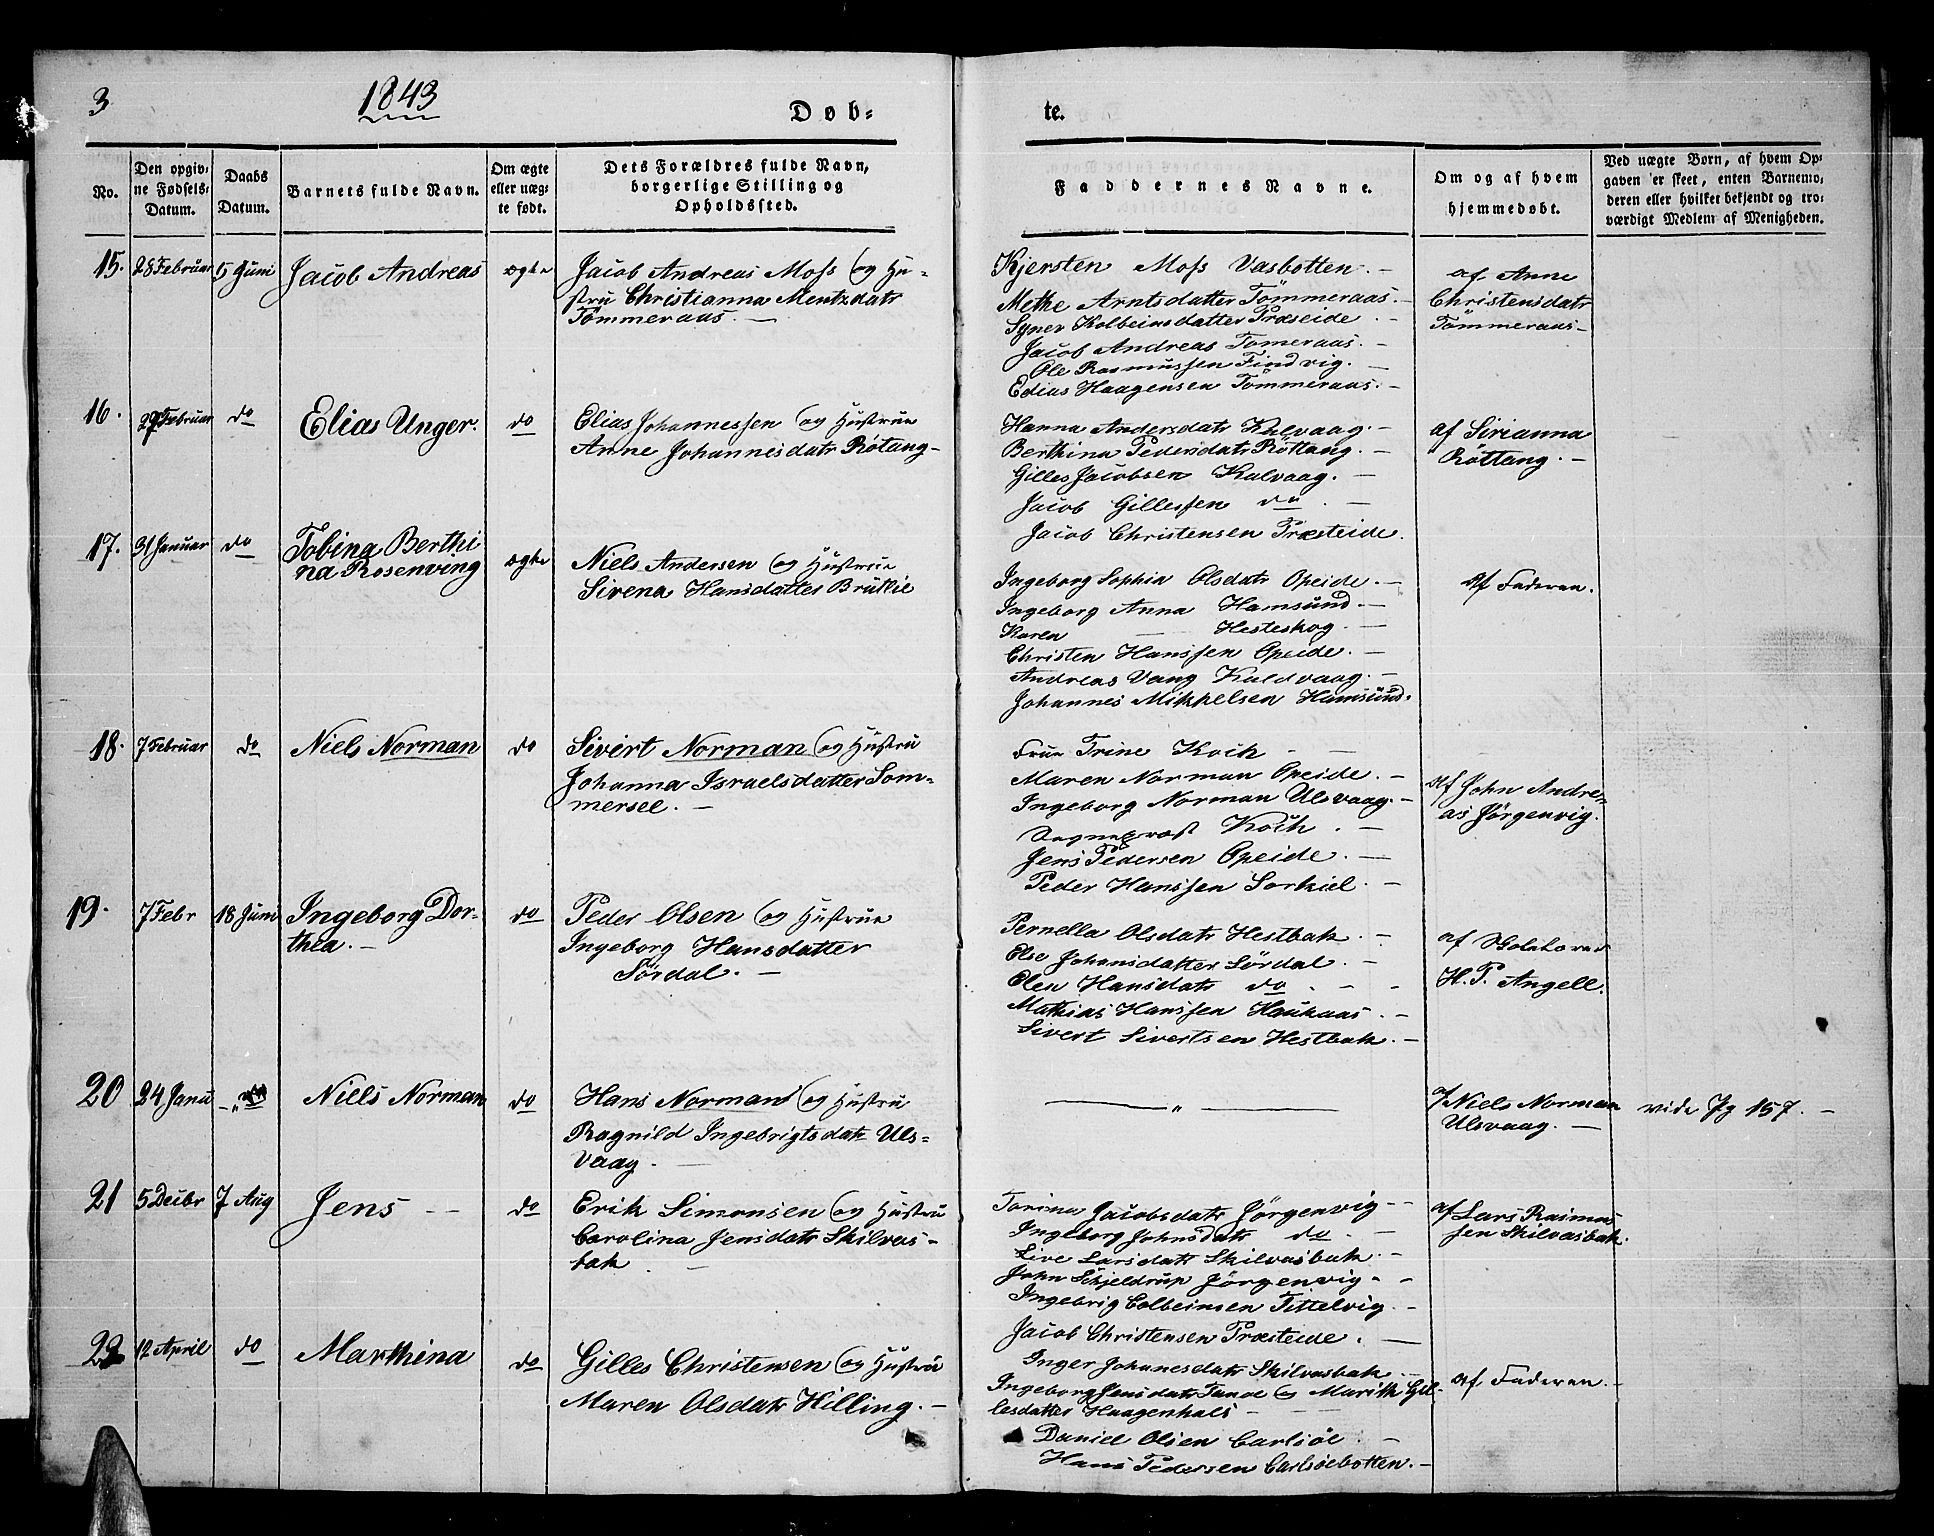 3
1843
Døb=
te.
No.
Den opgiv=
ne Fødsels=
Datum.
Daabs
Datum.
Barnets fulde Navn.
Om ægte
eller uæg=
te født.
Dets Forældres fulde Navn,
borgerlige Stilling og
Opholdssted.
Faddernes Navne.
Om og af hvem
hjemmedøbt.
Ved uægte Børn, af hvem Op=
gaven er skeet, enten Barnemo=
deren eller hvilket bekjendt og tro=
værdigt Medlem af Menigheden.
15.
28 Februar
5 Juni
Jacob Andreas
ægte
Jacob Andreas Moss og Hu=
stru Christianna Mentzdatr
Tömmeraas. —
Kjersten Moss Vasbotten. —
Methe Arntsdatter Tömmeraas. —
Syner Kolbeinsdatter Præseide. —
Jacob Andreas Tömeraas. —
Ole Rasmussen Findvig. —
Edias Haagensen Tömmeraas. —
af Anne
Christensdatr
Tömmeraas —
16.
27 Februar
do
Elias Unger.
do
Elias Johannessen og Hustrue
Anne Johannesdatr Rötang —
Hanna Andersdatr Kalvaag. —
Berthina Pedersdatr Röttang. —
Gilles Jacobsen Kalvaag. —
Jacob Gillessen do. —
Jacob Christensen Præsteide.
af Sirianna
Röttang. —
17.
31 Januar
do
Tobina Berthi
na Rosenving
ægte
Niels Andersen og Hustrue
Sirena Hansdatter
Ingeborg Sophia Olsdatr Opeide. —
Ingeborg Anna Hamsund. —
Karen — Hesteskog. —
Christen Hanssen Opeide. —
Andreas Vang Kaldvaag. —
Johannes Mikkelsen Hamsund.
af Faderen.
18.
7 Februar
do
Niels Norman
do
Sivert Norman og Hustru
Johanna Israelsdatter Som=
mersel. —
Frue Trine Koch — —
Maren Norman Opeide. —
Ingeborg Norman Ulsvaag. —
Koch. —
Jens Pedersen Opeide. —
Peder Hanssen Sorkiel. —
af John Andre=
as Jörgenvig.
19.
7 Febr
18 Juni
Ingeborg Dor=
thea. —
do
Peder Olsen og Hustrue
Ingeborg Hansdatter
Sördal. —
Pernella Olsdatr Hestbak. —
Else Johansdatter Sördal. —
Elen Hansdatr do. — —
Mathias Hanssen Haukaas. —
Sivert Sivertsen Hestbak. —
af Skolelærer
H. P. Angell.
20
24 Janu
do
Niels Norman
do
Hans Norman og Hustru
Ragnild Ingebrigtsdatr Uls=
vaag. —
— „ —
af Niels Norman
Ulsvaag. —
vide Pg 157. —
21
5 Decbr
7 Aug
Jens — —
do
Erik Simonsen og Hustru
Carolina Jensdatr Skilvas=
bak. —
Torina Jacobsdatr Jörgenvig —
Ingeborg Johnsdatr do. —
Live Larsdatr Skilvasbak. —
John Schjeldrup Jörgenvig. —
Ingebrig Colbeinsen Tittelvig. —
Jacob Christensen Præsteide. —
af Lars Rasmus
sen Skilvasbak.
22
12 April
do
Marthina
do
Gilles Christensen og Hustru
Maren Olsdatr Hilling. —
Inger Johanesdatr Skilvasbak —
Ingeborg Jensdatr og Marith Gil=
lesdatter Haagenhals —
Daniel Olsen Carlsöe. —
Hans Pedersen Carlsöebotten. —
af Faderen. —